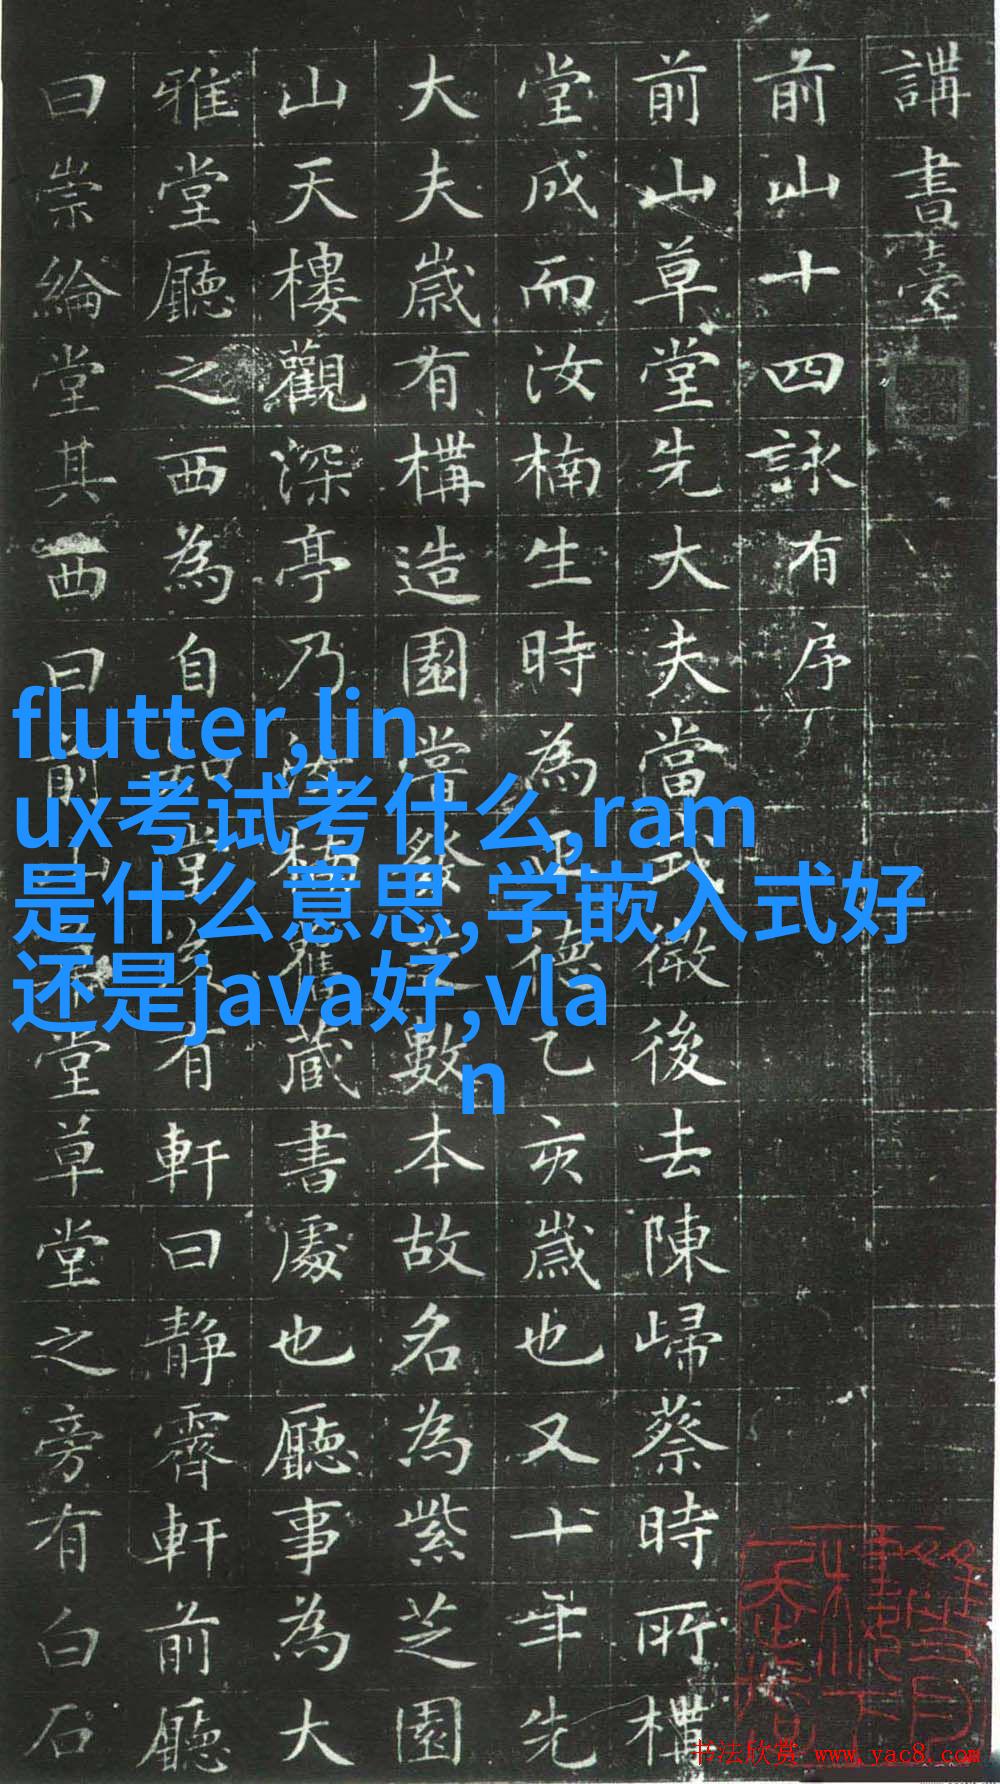 講書臺
前山十四詠有序
前山草堂先大夫當後去陳歸蔡時所構
堂成而汝楠生時為正德乙亥歲也又十年先
大夫歲有構造園嘗發芝數本故名為紫芝園
山天樓觀深亭乃汝楠舊蔵書處也廳事為大
雅堂廳之西為自知堂後有軒曰靜霽軒前廳
曰崇綸堂其西曰前山堂草堂之旁有白石
flutter,lin
ux考试考什么,ram
是什么意思,学嵌入式好
还是java好,vla
n
书法欣赏 www.yac8.com